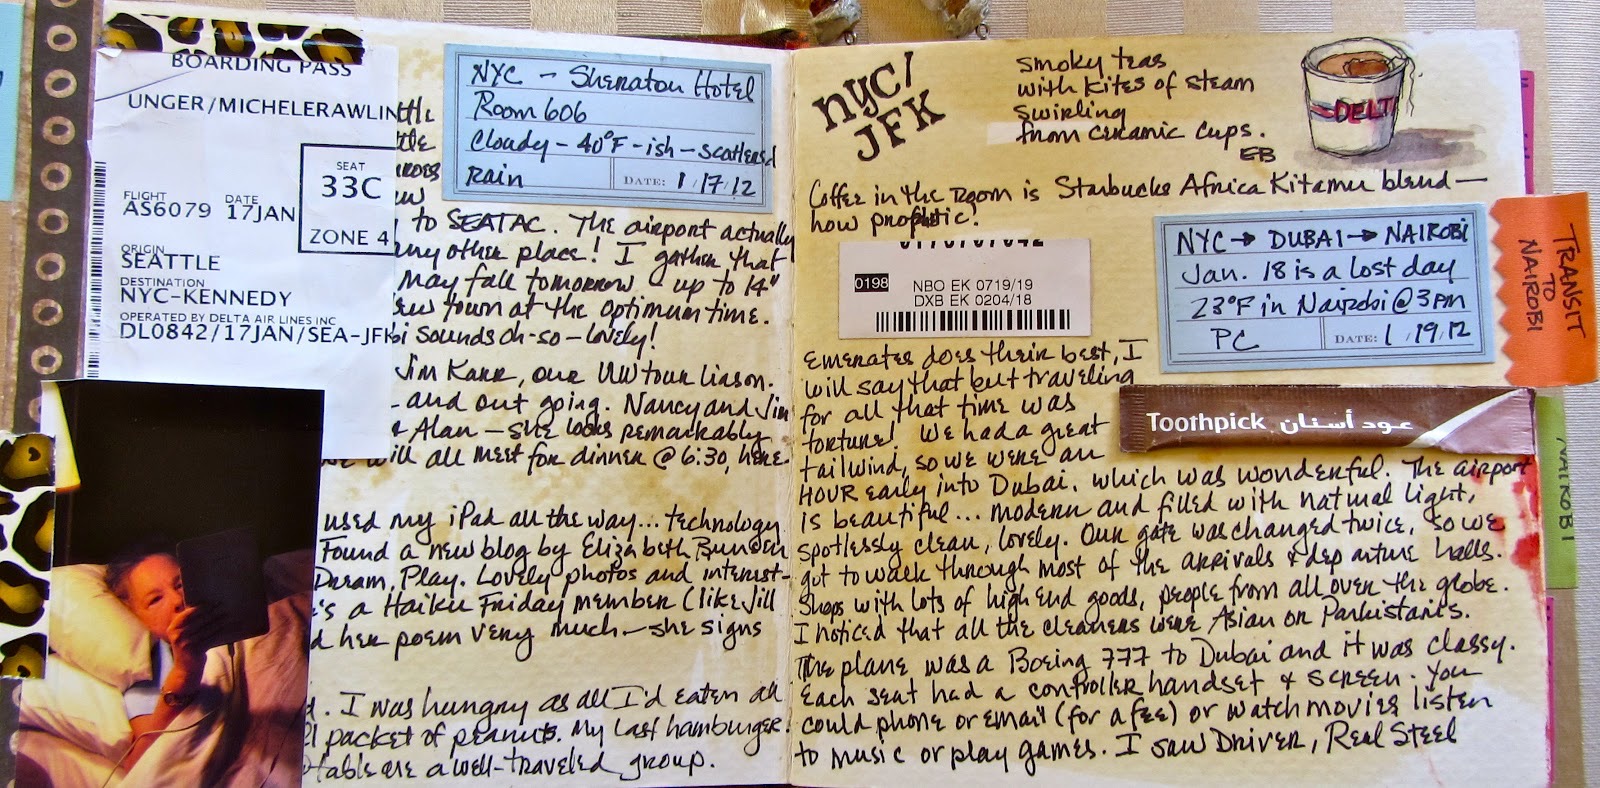 BOARDING PASS
UNGER/MICHELERAWLIN
SEAT
33C
ZONE 4
FLIGHT DATE
AS6079 17JAN
ORIGIN
SEATTLE
DESTINATION
NYC-KENNEDY
OPERATED BY DELTA AIR LINES INC
DL0842/17JAN/SEA-JFK
NYC - Sheraton Hotel
Room 606
Cloudy - 40°F-ish - scattered
rain DATE: 1/17/12
to SEATAC. The airport actually
any other place! I gather that
May fall tomorrow - up to 14"
town at the optimum time.
sounds oh-so-lovely!
Jim Karr, our UW tour liason.
- and out going. Nancy and Jim
Alan - she looks remarkably
will all meet for dinner @ 6:30, here.
used my iPad all the way... technology
Found a new blog by Elizabeth
Dream, Play. Lovely photos and interest-
's a Haiku Friday member (like Jill
d her poem very much - she signs
I was hungry as all I'd eaten all
packet of peanuts. My last hamburger.
table are a well-traveled group.
NYC/
JFK
Smoky teas
with kites of steam
swirling
from ceramic cups.
EB
DELTA
Coffee in the room is Starbucks Africa Kitamu blend -
how prophetic!
0198
NBO EK 0719/19
DXB EK 0204/18
NYC → DUBAI → NAIROBI
Jan. 18 is a lost day
23°F in Nairobi @ 3pm
PC DATE: 1/19/12
TRANSIT
TO
NAIROBI
NAIROBI
Toothpick عود أسنان
Emerates does their best, I
will say that but traveling
for all that time was
torture! We had a great
tailwind, so we were an
HOUR early into Dubai. which was wonderful. The airport
is beautiful... modern and filled with natural light,
spotlessly clean, lovely. Our gate was changed twice, so we
got to walk through most of the arrivals & departure halls.
Shops with lots of high end goods, people from all over the globe.
I noticed that all the cleaners were Asian or Parkistani's.
The plane was a Boeing 777 to Dubai and it was classy.
Each seat had a controller handset & screen. You
could phone or email (for a fee) or watch movies listen
to music or play games. I saw Driver, Real Steel